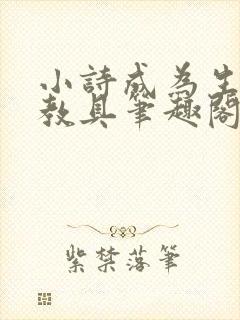 小詩成為生
教具筆趣閣
紫禁落筆